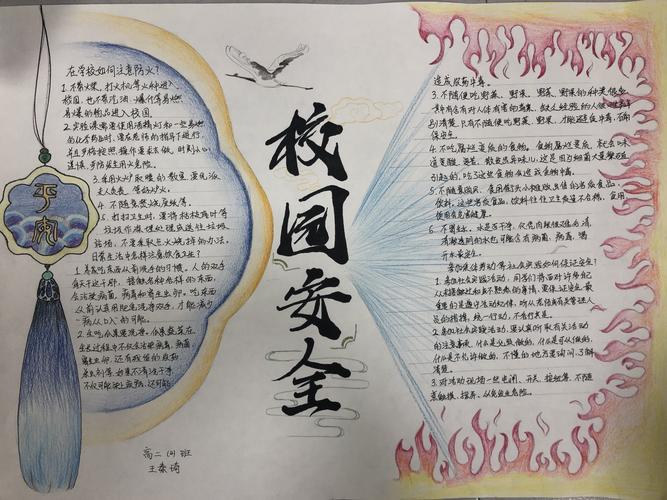 校园安全
平安
在学校如何注意防火？
1.不带火柴、打火机等火种进入
校园，也不带汽油、爆竹等易燃
易爆的物品进入校园。
2.实验课需要使用酒精灯和一些易燃
的化学药品时，要在老师的指导下进行，
并且严格按照操作要求去做，时刻小心
谨慎，严防发生用火危险。
3.采用火炉取暖的教室，要优派
专人负责，管好炉火。
4.不随意焚烧废纸等。
5.打扫卫生时，要将枯枝落叶等
垃圾作深埋处理或送往垃圾
站场，不要点火烧掉的办法。
日常生活中怎样注意饮食卫生？
1.养成吃东西以前洗手的习惯，人的双手
每天干这干那，接触各种各样的东西，
会沾染病菌、病毒和寄生虫卵。吃东西
以前认真用肥皂洗净双手，才能减少
“病从口入”的可能。
2.生吃瓜果要洗净。瓜果蔬菜在
生长过程中不仅会沾染病菌、病毒、
寄生虫卵，还有残留的农药、
杀虫剂等，如果不清洗干净，
不仅可能染上疾病，还可能
造成农药中毒。
3.不随便吃野菜、野果。野菜、野果的种类很多，
其中含有对人体有害的毒素，缺乏经验的人很难
辨别清楚，只有不随便吃野菜、野果，才能避免中毒，确
保安全。
4.不吃腐烂变质的食物。食物腐烂变质，就会味
道变酸、变苦，散发出异味儿，这是因为细菌大量繁殖
引起的，吃了这些食物会造成食物中毒。
5.不随意购买、食用街头小摊贩出售的劣质食品、
饮料。这些劣质食品、饮料往往卫生质量不合格，食用、
饮用会危害健康。
6.不喝生水。水是否干净，仅凭肉眼很难分清，
清澈透明的水也可能含有病菌、病毒，喝
开水最安全。
参加集体劳动等社会实践活动如何保证安全？
1.参加社会实践活动，同学们将面对许多自己
从未接触过或不熟悉的事情，要保证安全，最
重要的是遵守活动纪律，听从老师或有关管理人
员的指挥，统一行动，不各行其是。
2.参加社会实践活动，要认真听取有关活动
的注意事项，什么是必须做的，什么是可以做的，
什么是不允许做的，不懂的地方要询问、了解
清楚。
3.对活动现场一些电闸、开关、按钮等，不随
意触摸、拨弄，以免发生危险。
高二（四）班